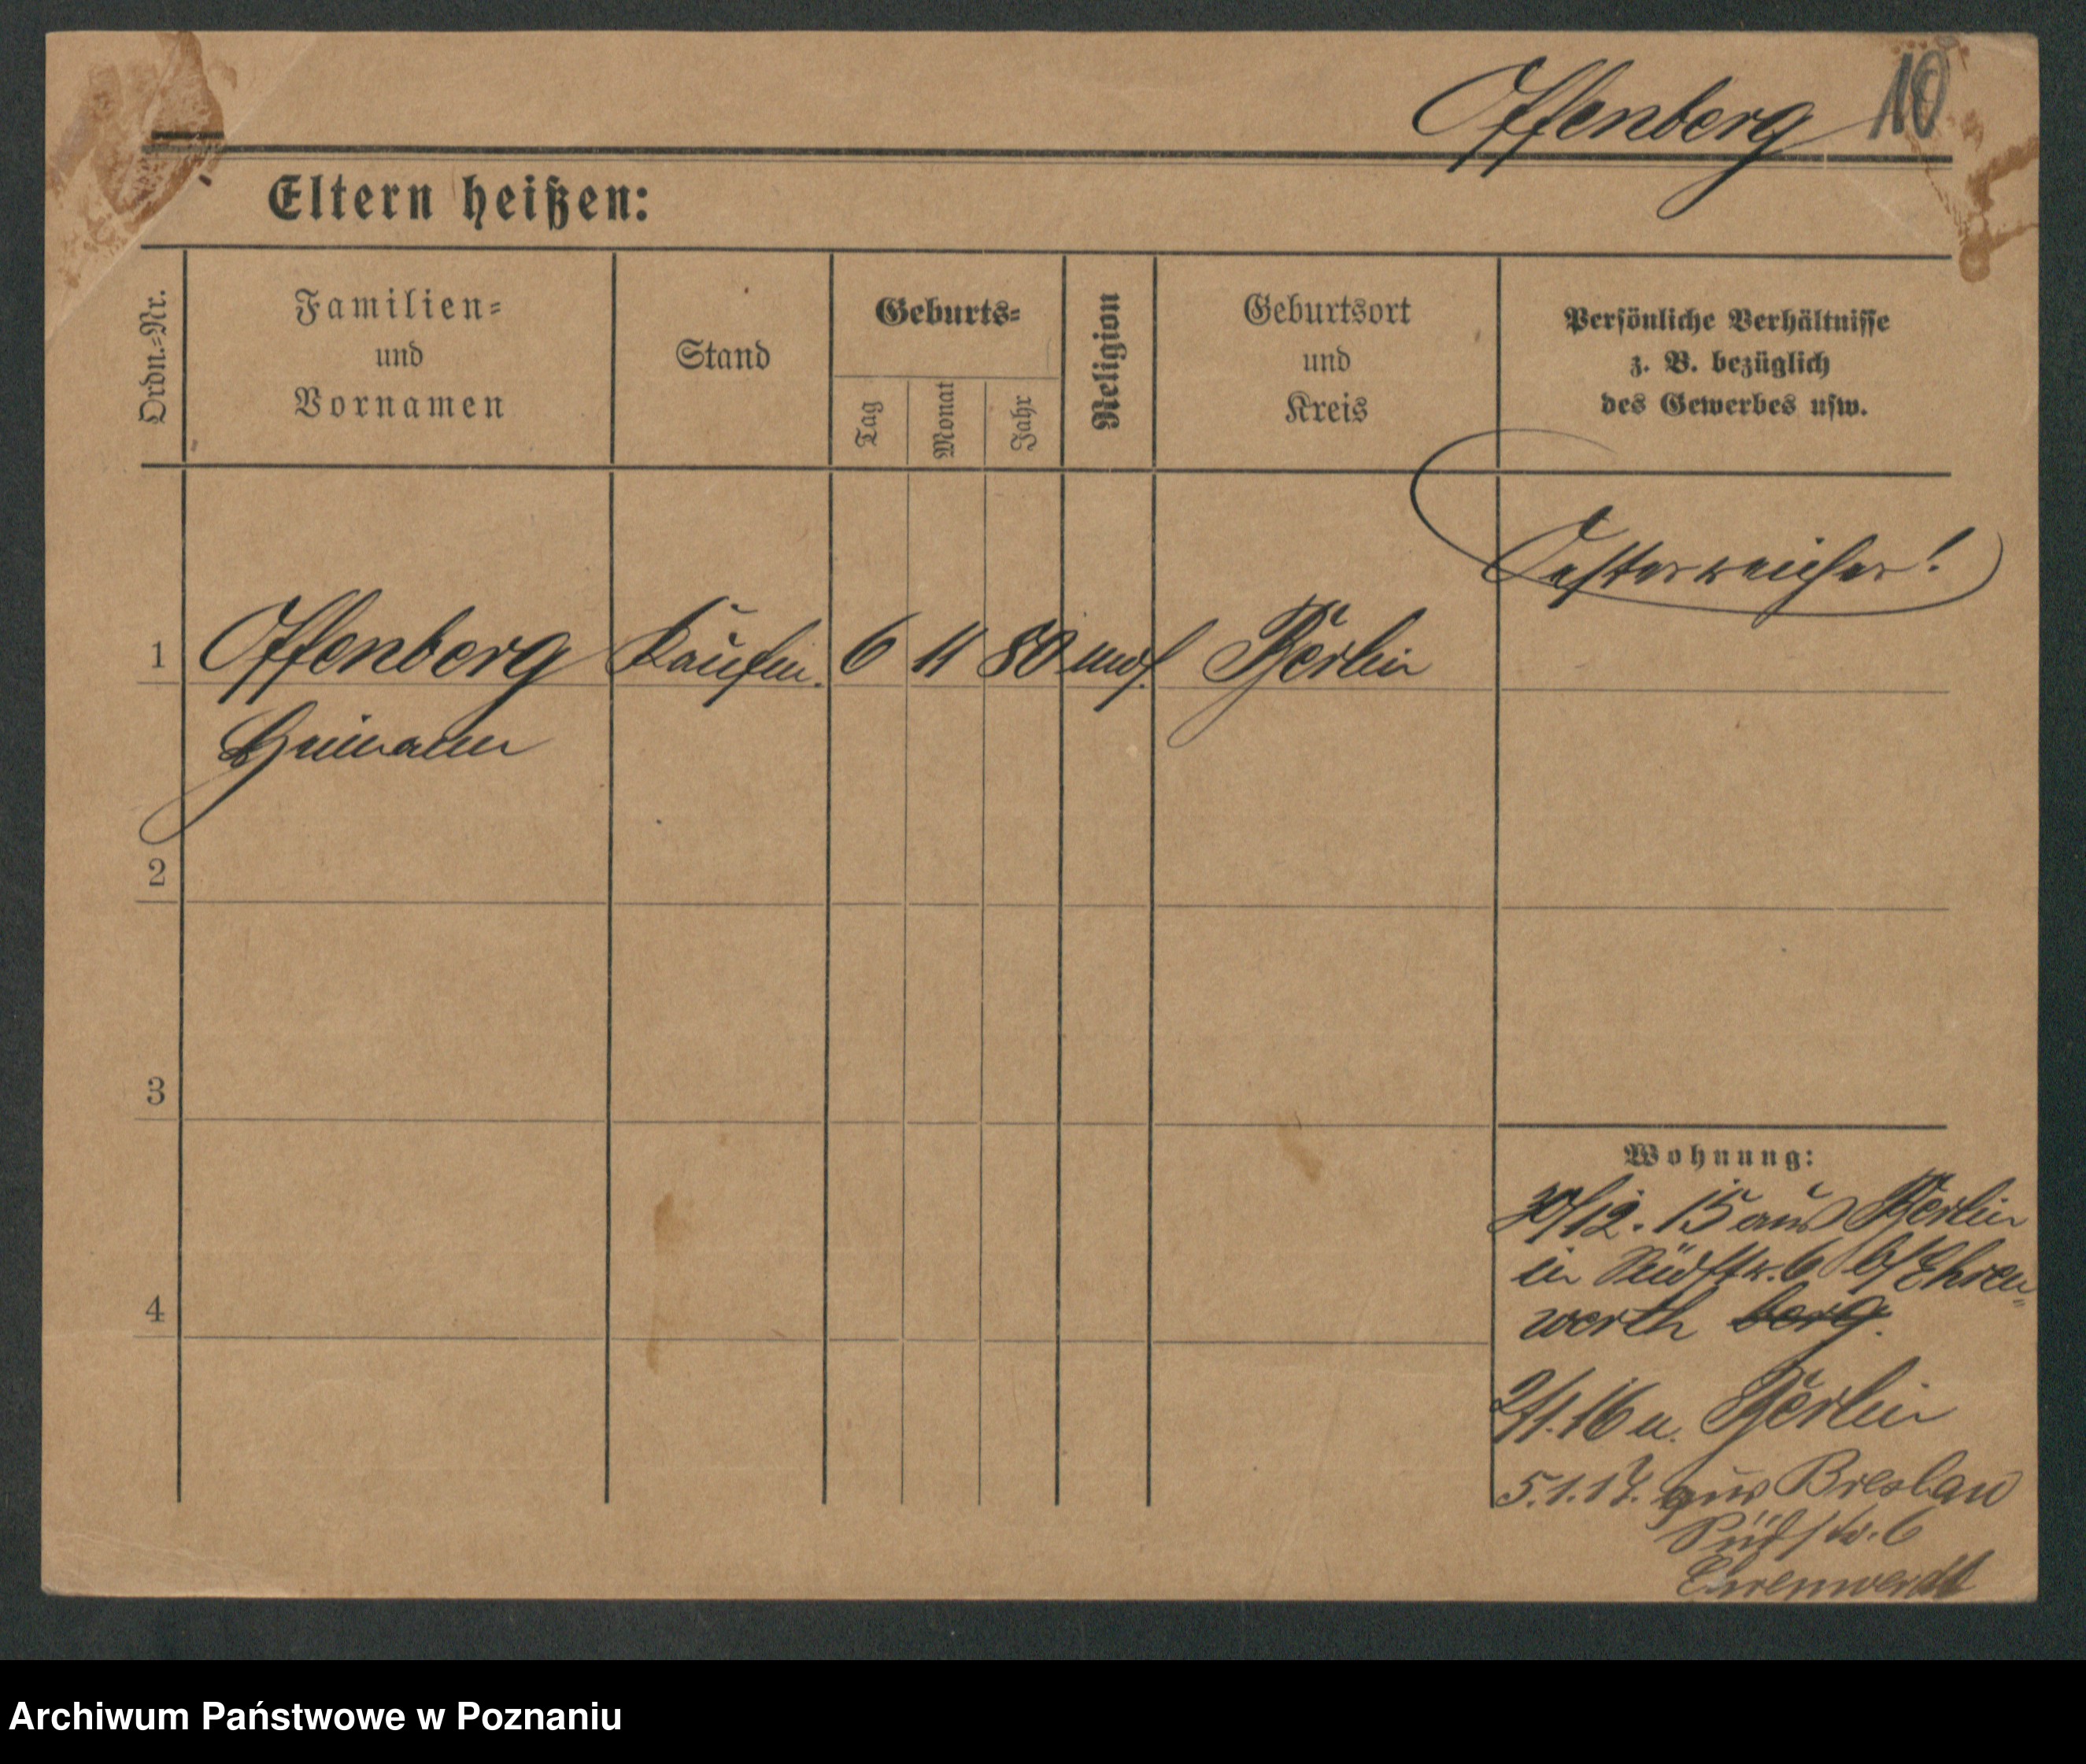 Offenberg 10
Eltern heißen:
Ordn.=Nr.
Familien=
und
Vornamen
Stand
Geburts=
Tag
Monat
Jahr
Religion
Geburtsort
und
Kreis
Persönliche Verhältnisse
z. B. bezüglich
des Gewerbes usw.
Oesterreicher!
1 Offenberg Kaufm. 6 11 80 mos. Berlin
Heimann
2
3
4
Wohnung:
30/12. 15 aus Berlin
in Südstr. 6 b/ Ehren=
werth berg.
2/1. 16 n. Berlin
5.1.17. aus Breslau
Südstr. 6
Ehrenwerth
Archiwum Państwowe w Poznaniu